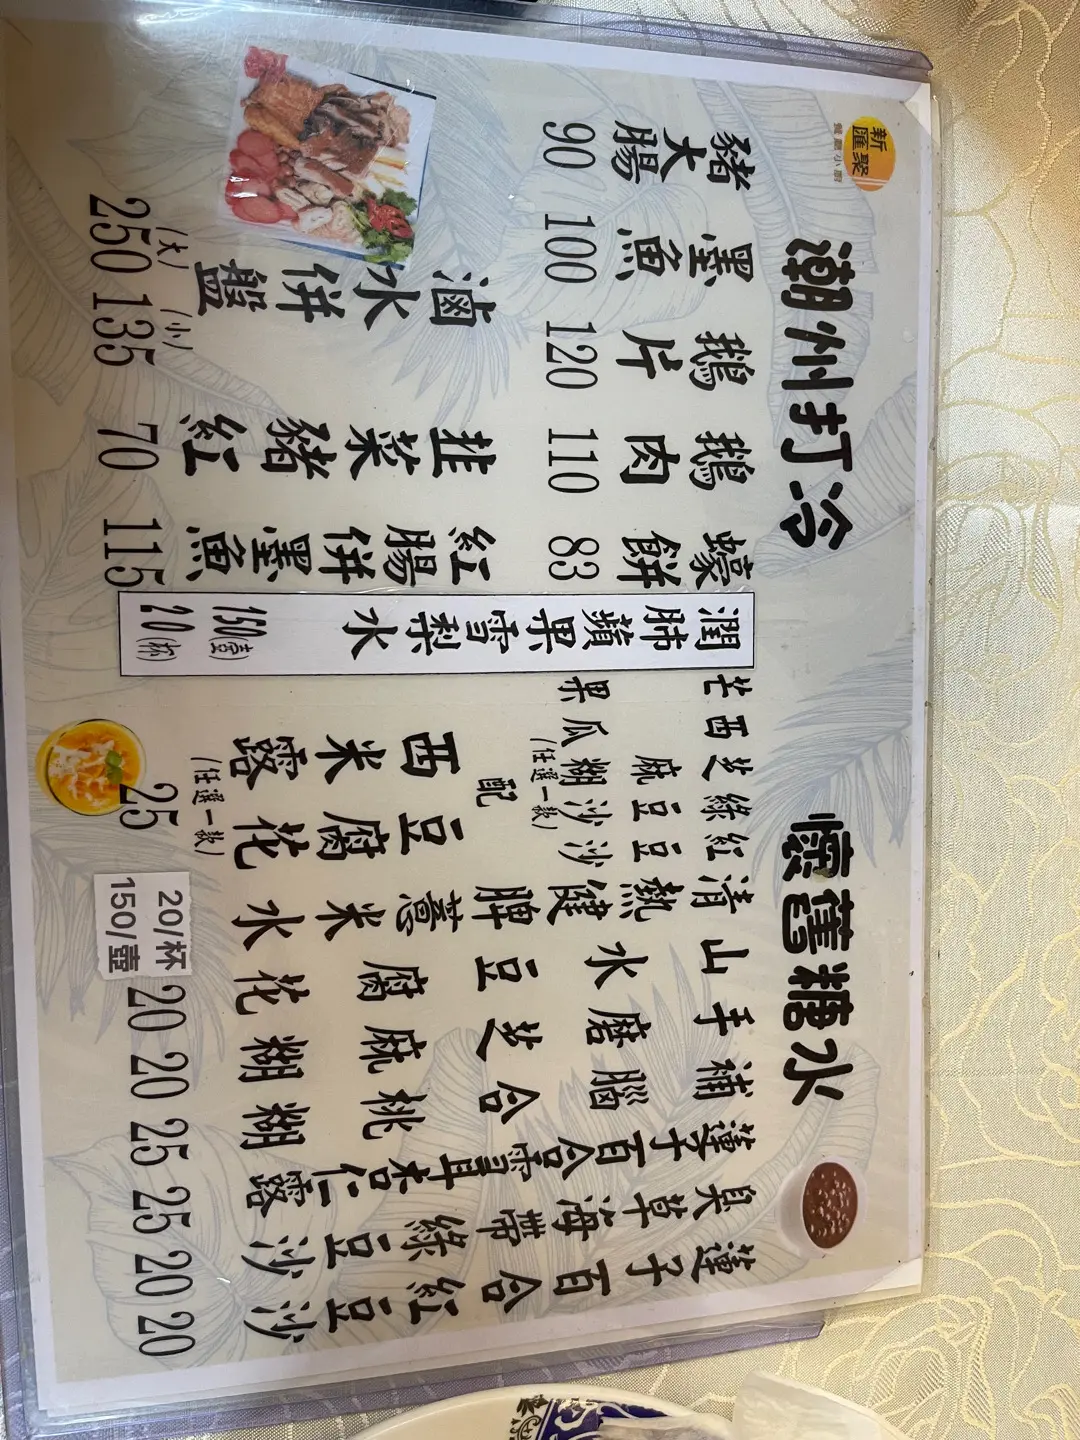 新匯聚
潮州打冷
豬大腸 90
墨魚 100
鵝片 120
鵝肉 110
蠔餅 83
滷水併盤
(大) 250
(小) 135
韭菜豬紅 70
紅腸併墨魚 115
潤肺蘋果雪梨水
150(壺)
20(杯)
懷舊糖水
芒果
西瓜
芝麻糊
綠豆沙
紅豆沙
(任選一款)
配
西米露
豆腐花
(任選一款)
25
清熱健脾薏米水
20/杯
150/壺
山水豆腐花 20
手磨芝麻糊 20
補腦合桃糊 25
蓮子百合雪耳杏仁露 25
臭草海帶綠豆沙 20
蓮子百合紅豆沙 20